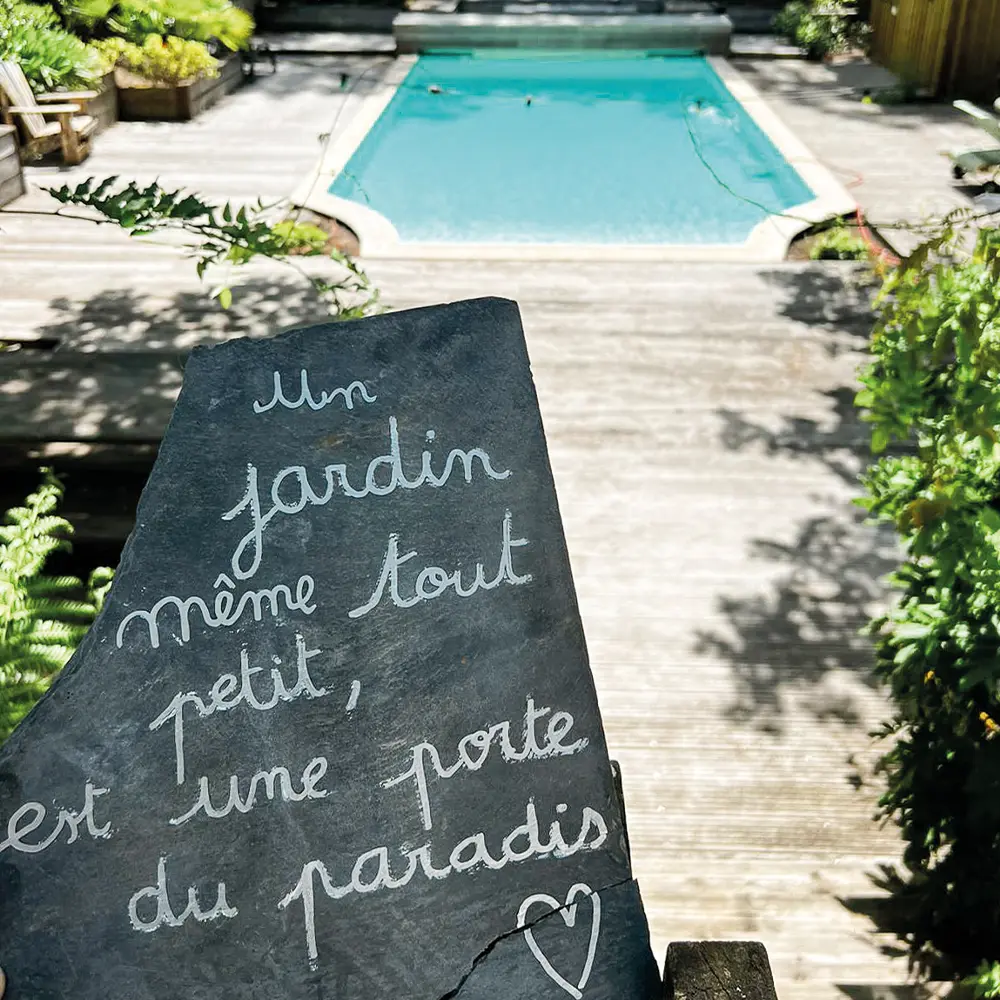 Un
jardin
même tout
petit,
est une porte
du paradis